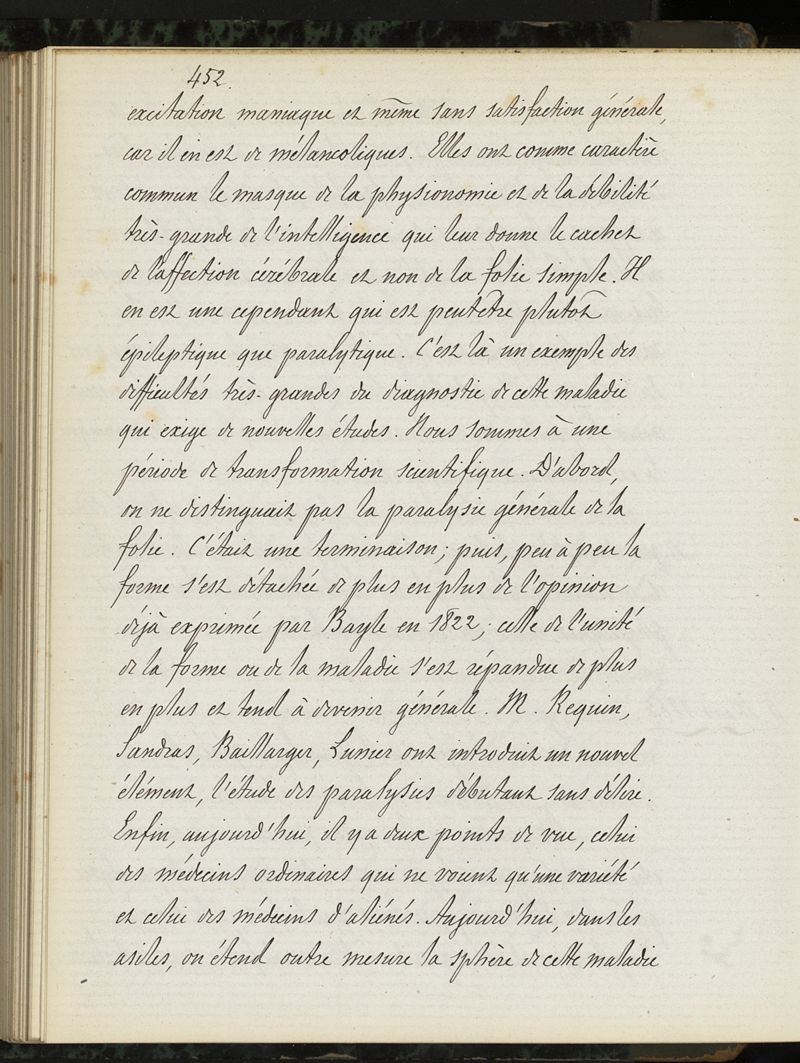 452.
excitation maniaque et même sans satisfaction générale,
car il en est de mélancoliques. Elles ont comme caractère
commun le masque de la physionomie et de la débilité
très-grande de l'intelligence qui leur donne le cachet
de l'affection cérébrale et non de la folie simple. Il
en est une cependant qui est peutêtre plutôt
épileptique que paralytique. C'est là un exemple des
difficultés très-grandes du diagnostic de cette maladie
qui exige de nouvelles études. Nous sommes à une
période de transformation scientifique. D'abord,
on ne distinguait pas la paralysie générale de la
folie. C'était une terminaison; puis, peu à peu la
forme s'est détachée de plus en plus de l'opinion
déjà exprimée par Bayle en 1822; celle de l'unité
de la forme ou de la maladie s'est répandue de plus
en plus et tend à devenir générale. M. Requin,
Sandras, Baillarger, Lunier ont introduit un nouvel
élément, l'étude des paralysies débutant sans délire.
Enfin, aujourd'hui, il y a deux points de vue, celui
des médecins ordinaires qui ne voient qu'une variété
et celui des médecins d'aliénés. Aujourd'hui, dans les
asiles, on étend outre mesure la sphère de cette maladie